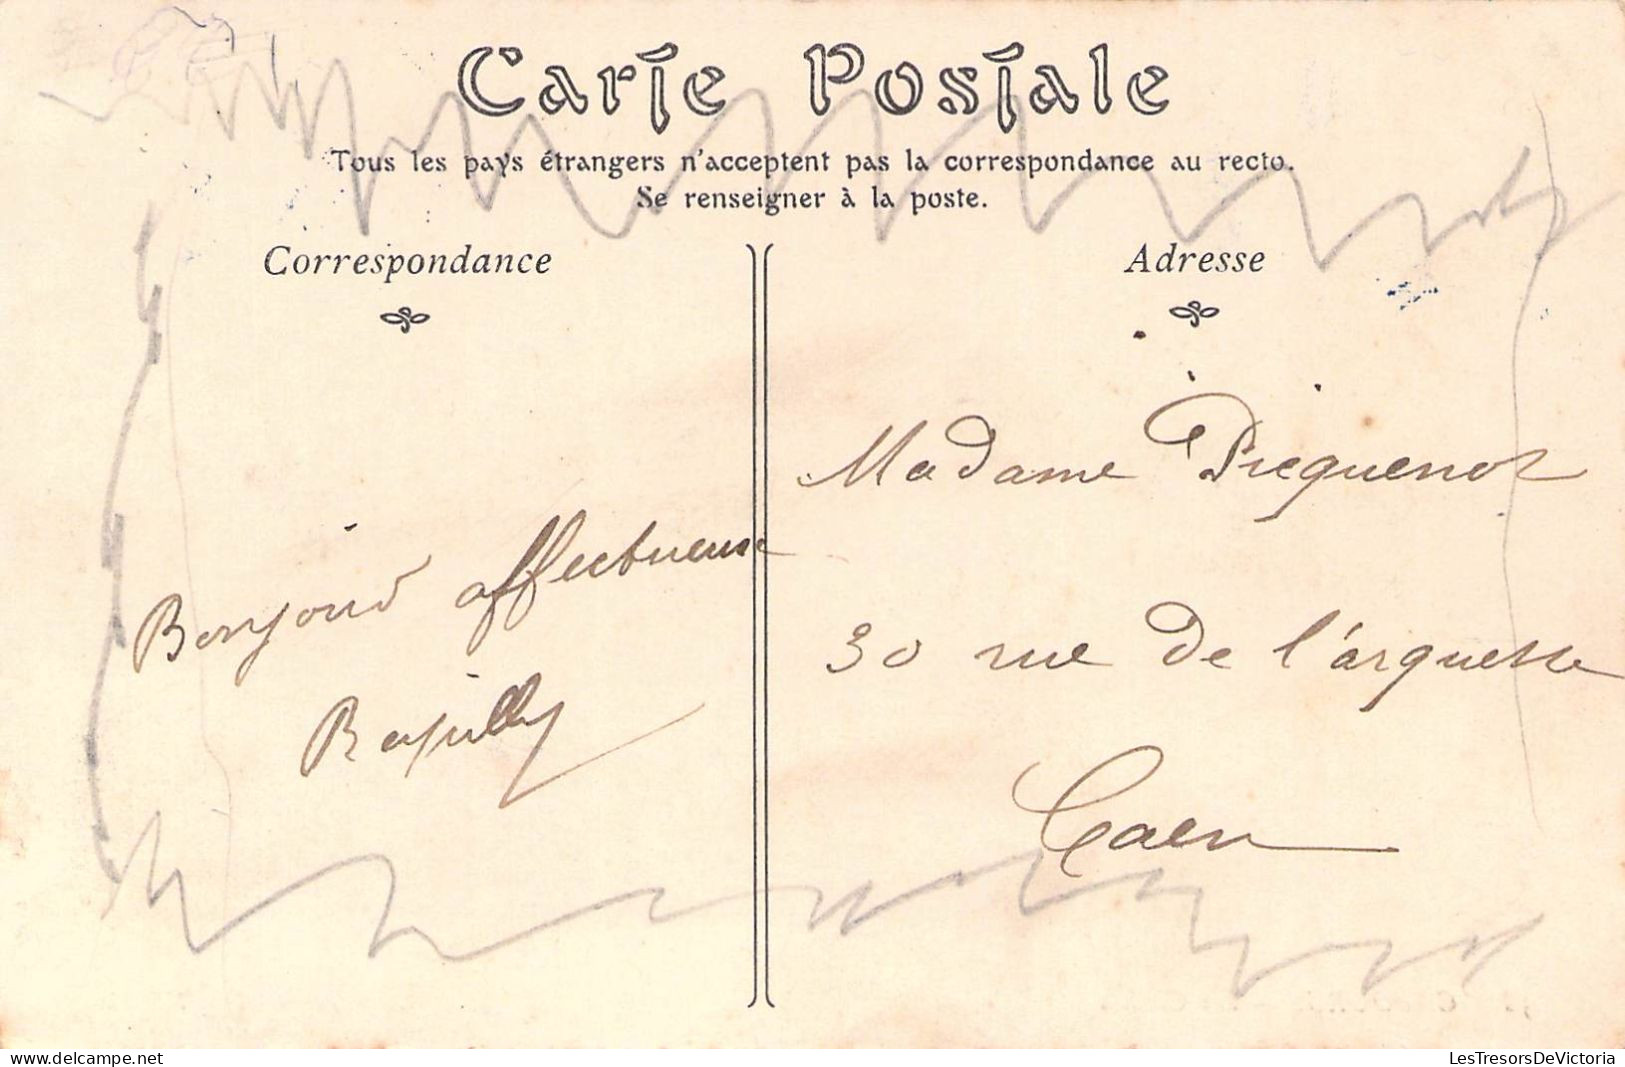 Carte Postale
Tous les pays étrangers n'acceptent pas la correspondance au recto.
Se renseigner à la poste.
Correspondance
Adresse
Bonjour affectueux
Madame Piequenot
30 rue de l'arquette
Caen
LesTresorsDeVictoria